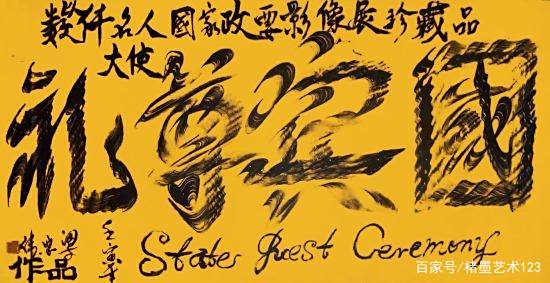 數仟名人國家政要影像展珍藏品
大使
國賓尊礼
State Guest Ceremony
壬寅年
作品
百家号/楮墨艺术123